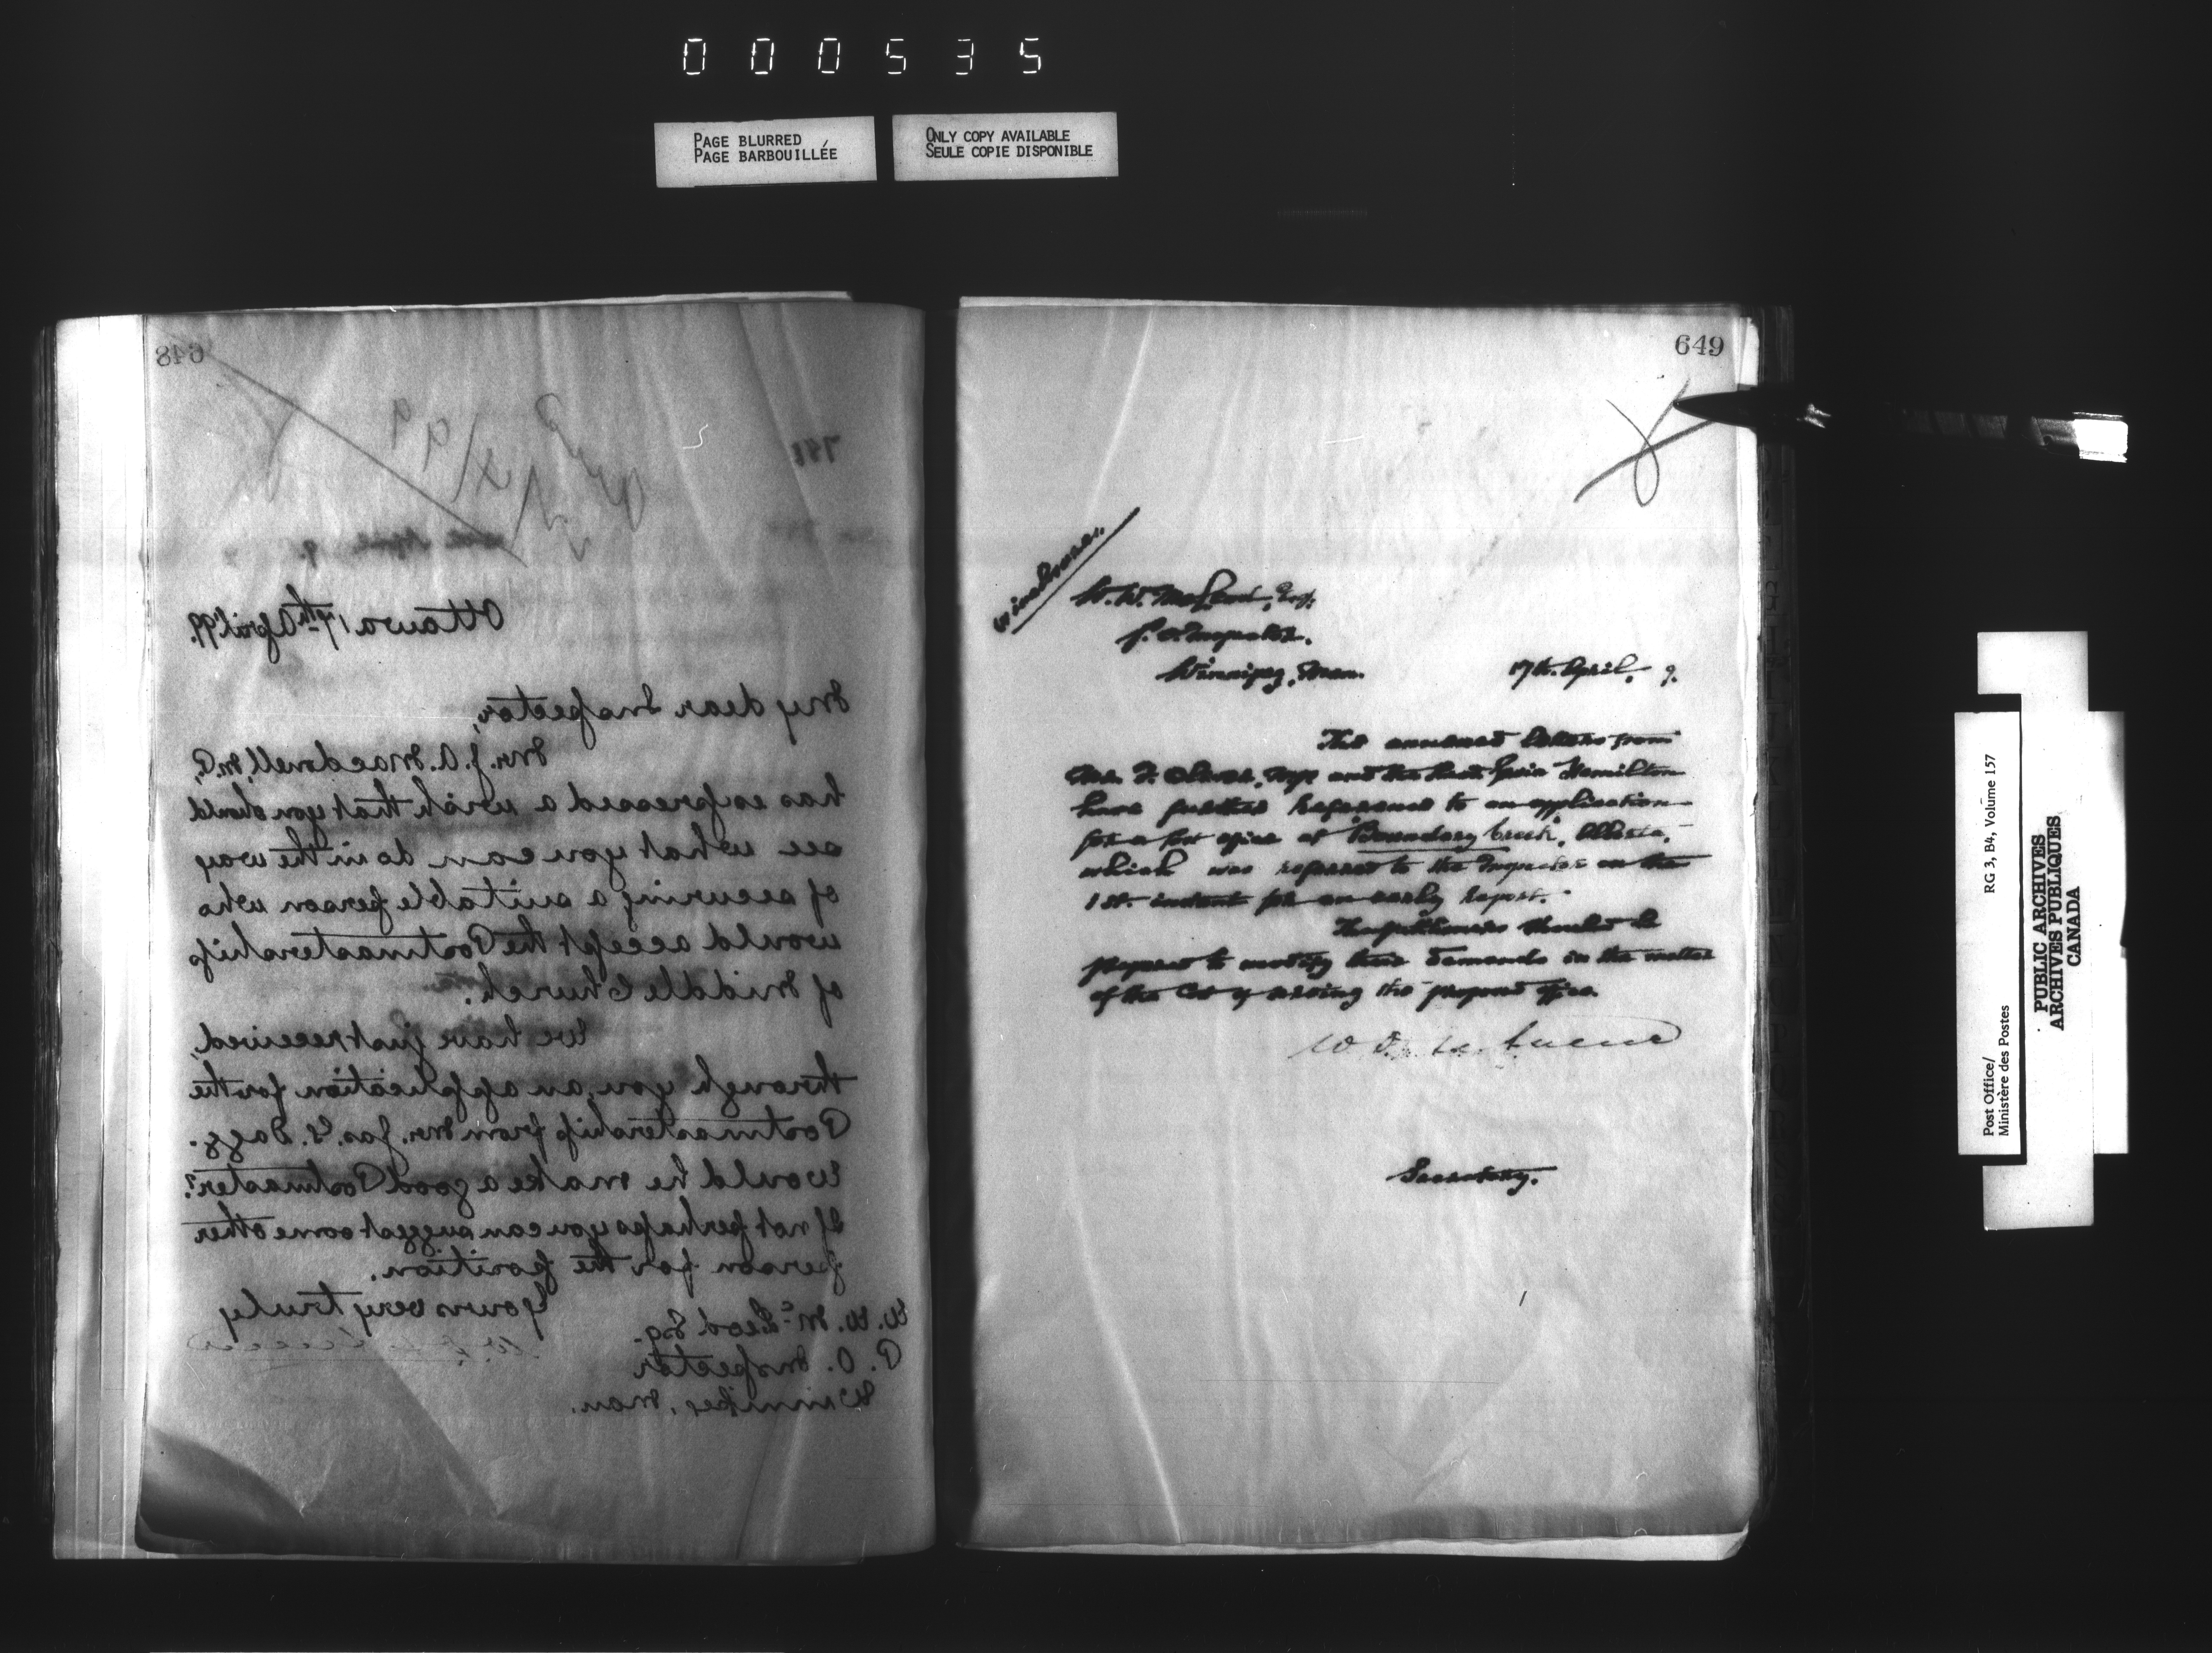 000535
PAGE BLURRED
PAGE BARBOUILLÉE
ONLY COPY AVAILABLE
SEULE COPIE DISPONIBLE
648
Ottawa 17th April '99.
My dear Inspector,
Mr. J. A. Macdonell, M.P,
has expressed a wish that you should
see what you can do in the way
of securing a suitable person who
would accept the Postmastership
of Middle Church.
We have just received,
through you, an application for the
Postmastership from Mr. Jas. S. Dagg.
Would he make a good Postmaster?
If not perhaps you can suggest some other
person for the position.
Yours very truly
W. W. McLeod Esq.
P. O. Inspector
Winnipeg, Man.
649
W. W. McLeod, Esq.
P. O. Inspector.
Winnipeg, Man.
17th. April, 9.
The annexed letters from
and the Hamilton
have further reference to an application
for a Post office at "Boundary Creek", Alberta,
which was referred to the Inspector on the
1st. instant for an early report.
The petitioners should be
prepared to modify their demands in the matter
of the cost of serving the proposed office.
Secretary.
Post Office/
Ministère des Postes
RG 3, B4, Volume 157
PUBLIC ARCHIVES
ARCHIVES PUBLIQUES
CANADA